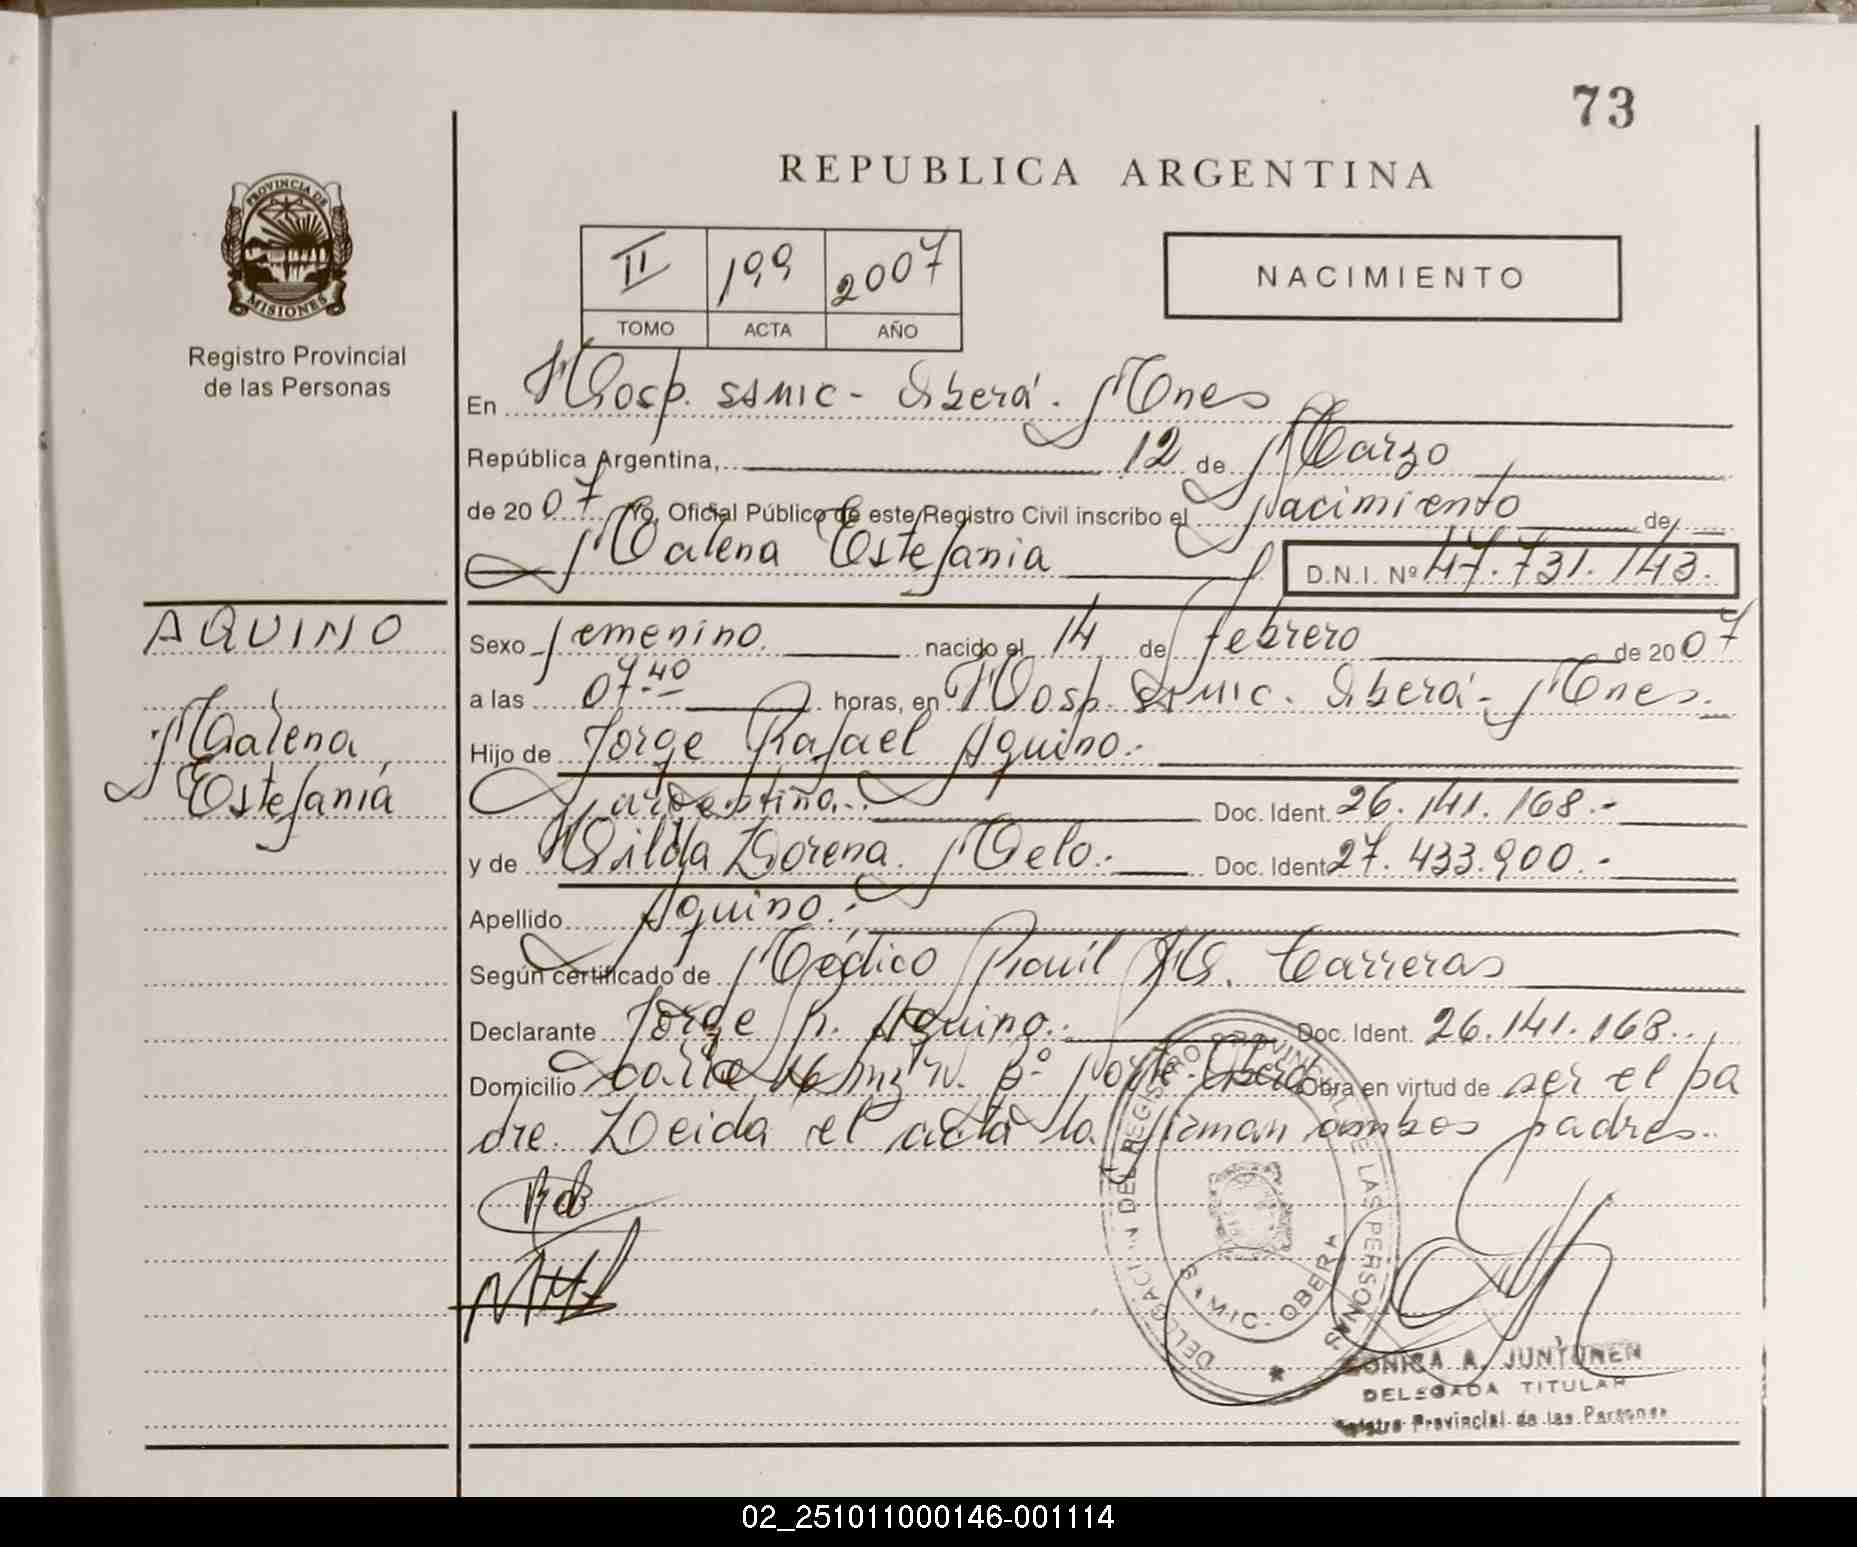 73
REPUBLICA ARGENTINA
PROVINCIA DE
MISIONES
Registro Provincial
de las Personas
II 199 2007
TOMO ACTA AÑO
NACIMIENTO
En Hosp. SAMIC - Oberá - Mnes
República Argentina, 12 de Marzo
de 2007 Yo, Oficial Público de este Registro Civil inscribo el Nacimiento de
Malena Estefania D.N.I. Nº 47.731.143.
AQUINO
Malena
Estefanía
Sexo femenino. nacido el 14 de febrero de 2007
a las 07.40 horas, en Hosp. SAMIC. Oberá - Mnes.
Hijo de Jorge Rafael Aquino.-
argentina.- Doc. Ident. 26.141.168.-
y de Hilda Lorena Melo.- Doc. Ident. 27.433.900.-
Apellido Aquino.-
Según certificado de Médico Raúl H. Carreras
Declarante Jorge R. Aquino. Doc. Ident. 26.141.168.
Domicilio Bº Norte - Oberá Obra en virtud de ser el pa
dre. Leida el acta la firman ambos padres.
DELEGACION DEL REGISTRO PROVINCIAL DE LAS PERSONAS
SAMIC - OBERA
A. JUNTUNEN
DELEGADA TITULAR
Registro Provincial de las Personas
02_251011000146-001114